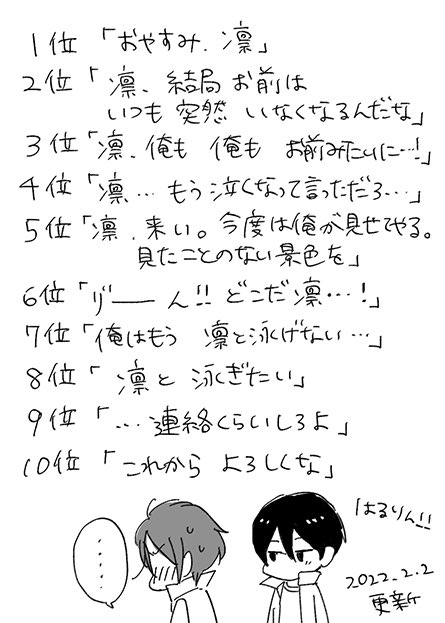 1位「おやすみ.凛」
2位「凛、結局お前は
いつも突然いなくなるんだな」
3位「凛、俺も 俺も お前みたいに…!」
4位「凛…もう泣くなって言っただろ…」
5位「凛、来い。今度は俺が見せてやる。
見たことのない景色を」
6位「リ゛ー ん!!どこだ凛…!」
7位「俺はもう 凛と泳げない…」
8位「凛と泳ぎたい」
9位「…連絡くらいしろよ」
10位「これから よろしくな」
はるりん!!
……
2022.2.2
更新